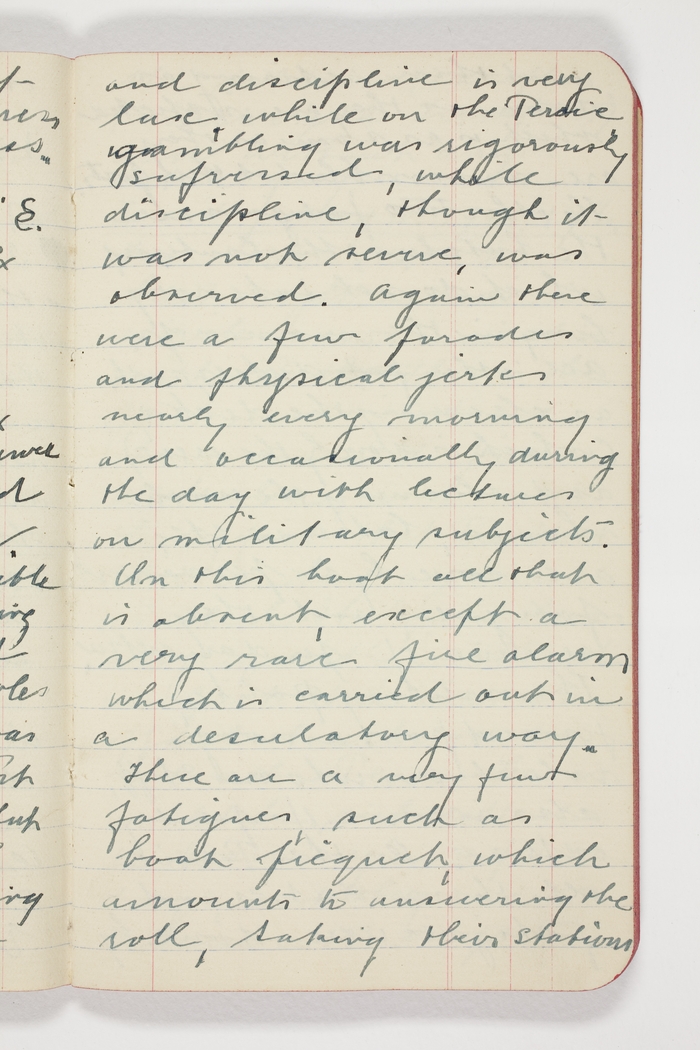 and discipline is very
lax while on the Persic
gambling was rigorously
supressed, while
discipline, though it
was not severe, was
observed. Again there
were a few parades
and physical jerks
nearly every morning
and occasionally during
the day with lectures
on military subjects.
On this boat all that
is absent, except a
very rare fire alarm
which is carried out in
a desulatory way.
There are a very few
fatigues, such as
boat picquet, which
amounts to answering the
roll, taking their stations